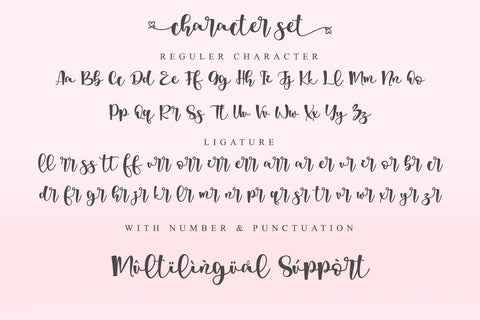 character set
REGULER CHARACTER
Aa Bb Cc Dd Ee Ff Gg Hh Ii Jj Kk Ll Mm Nn Oo
Pp Qq Rr Ss Tt Uu Vv Ww Xx Yy Zz
LIGATURE
ll rr ss tt ff urr orr irr err arr ar er ur ir or br cr
dr fr gr hr jr kr lr mr nr pr qr sr tr vr wr xr yr zr
WITH NUMBER & PUNCTUATION
Mûltilìngüål Súppòrt